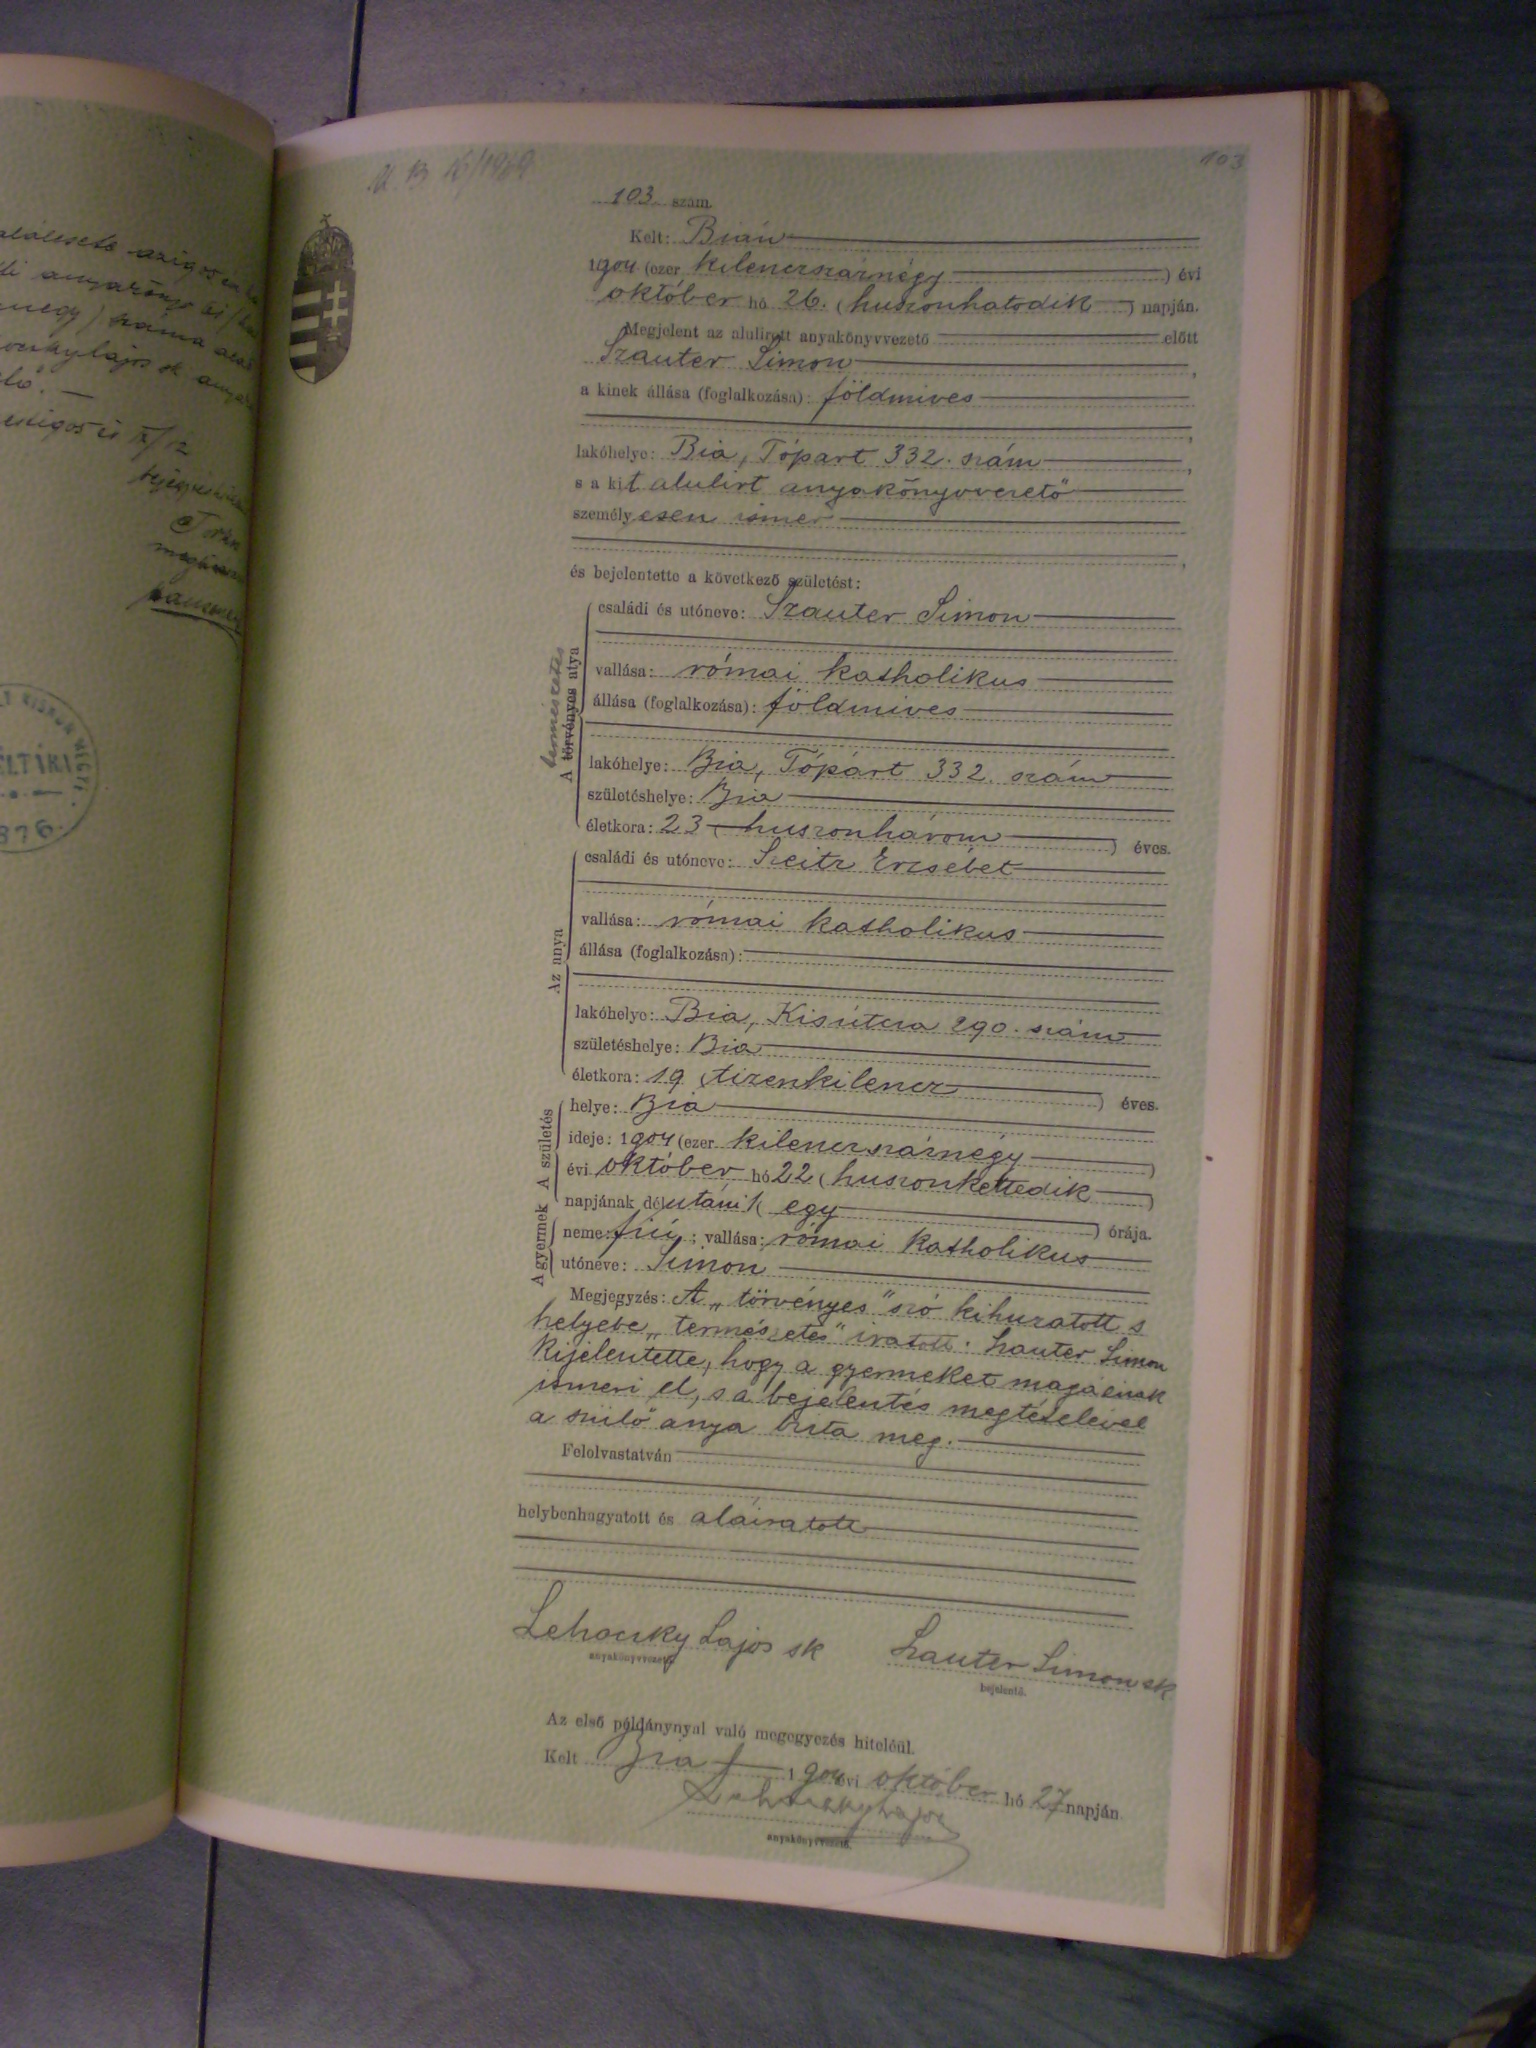 103
103 szám.
Kelt: Bián
1904 (ezer kilencszáznégy) évi
október hó 26. (huszonhatodik) napján.
Megjelent az alulirott anyakönyvvezető előtt
Szauter Simon,
a kinek állása (foglalkozása): földmives
,
lakóhelye: Bia, Tópart 332. szám,
s a kit alulirt anyakönyvvezető
személyesen ismer
,
és bejelentette a következő születést:
A törvényes atya
természetes
családi és utóneve: Szauter Simon
vallása: római katholikus
állása (foglalkozása): földmives
lakóhelye: Bia, Tópárt 332. szám
születéshelye: Bia
életkora: 23 (huszonhárom) éves.
Az anya
családi és utóneve: Szeitz Erzsébet
vallása: római katholikus
állása (foglalkozása):
lakóhelye: Bia, Kisútcza 290. szám
születéshelye: Bia
életkora: 19 (tizenkilencz) éves.
A születés
helye: Bia
ideje: 1904 (ezer kilenczszáznégy)
évi október hó 22 (huszonkettedik)
napjának délutáni (egy) órája.
A gyermek
neme: fiú; vallása: római katholikus
utóneve: Simon
Megjegyzés: A „törvényes" szó kihuzatott s
helyebe „természetes" iratott. Szauter Simon
kijelentette, hogy a gyermeket magáénak
ismeri el, s a bejelentés megtételével
a szülő anya bizta meg.
Felolvastatván
helybenhagyatott és aláiratott
Lehoczky Lajos sk Szauter Simon sk
anyakönyvvezető. bejelentő.
Az első példánynyal való megegyezés hiteléül.
Kelt Bia 1904 évi október hó 27 napján
Lehoczky Lajos
anyakönyvvezető.